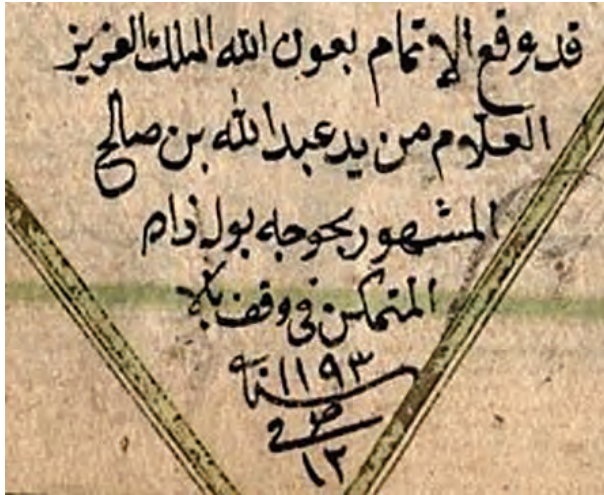 قد وقع الاتمام بعون الله الملك العزيز
العلام من يد عبد الله بن صالح
المشهور بخوجه بولذام
المتمكن في وقف بالا
سنة ١١٩٣
ص
١٢